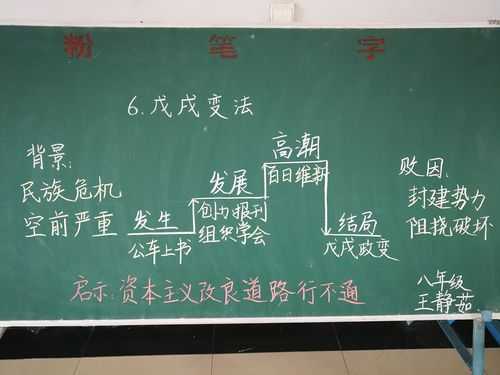 粉笔字
6.戊戌变法
背景:
民族危机
空前严重
发生
公车上书
发展
创办报刊
组织学会
高潮
百日维新
结局
戊戌政变
败因:
封建势力
阻挠破坏
启示:资本主义改良道路行不通
八年级
王静茹